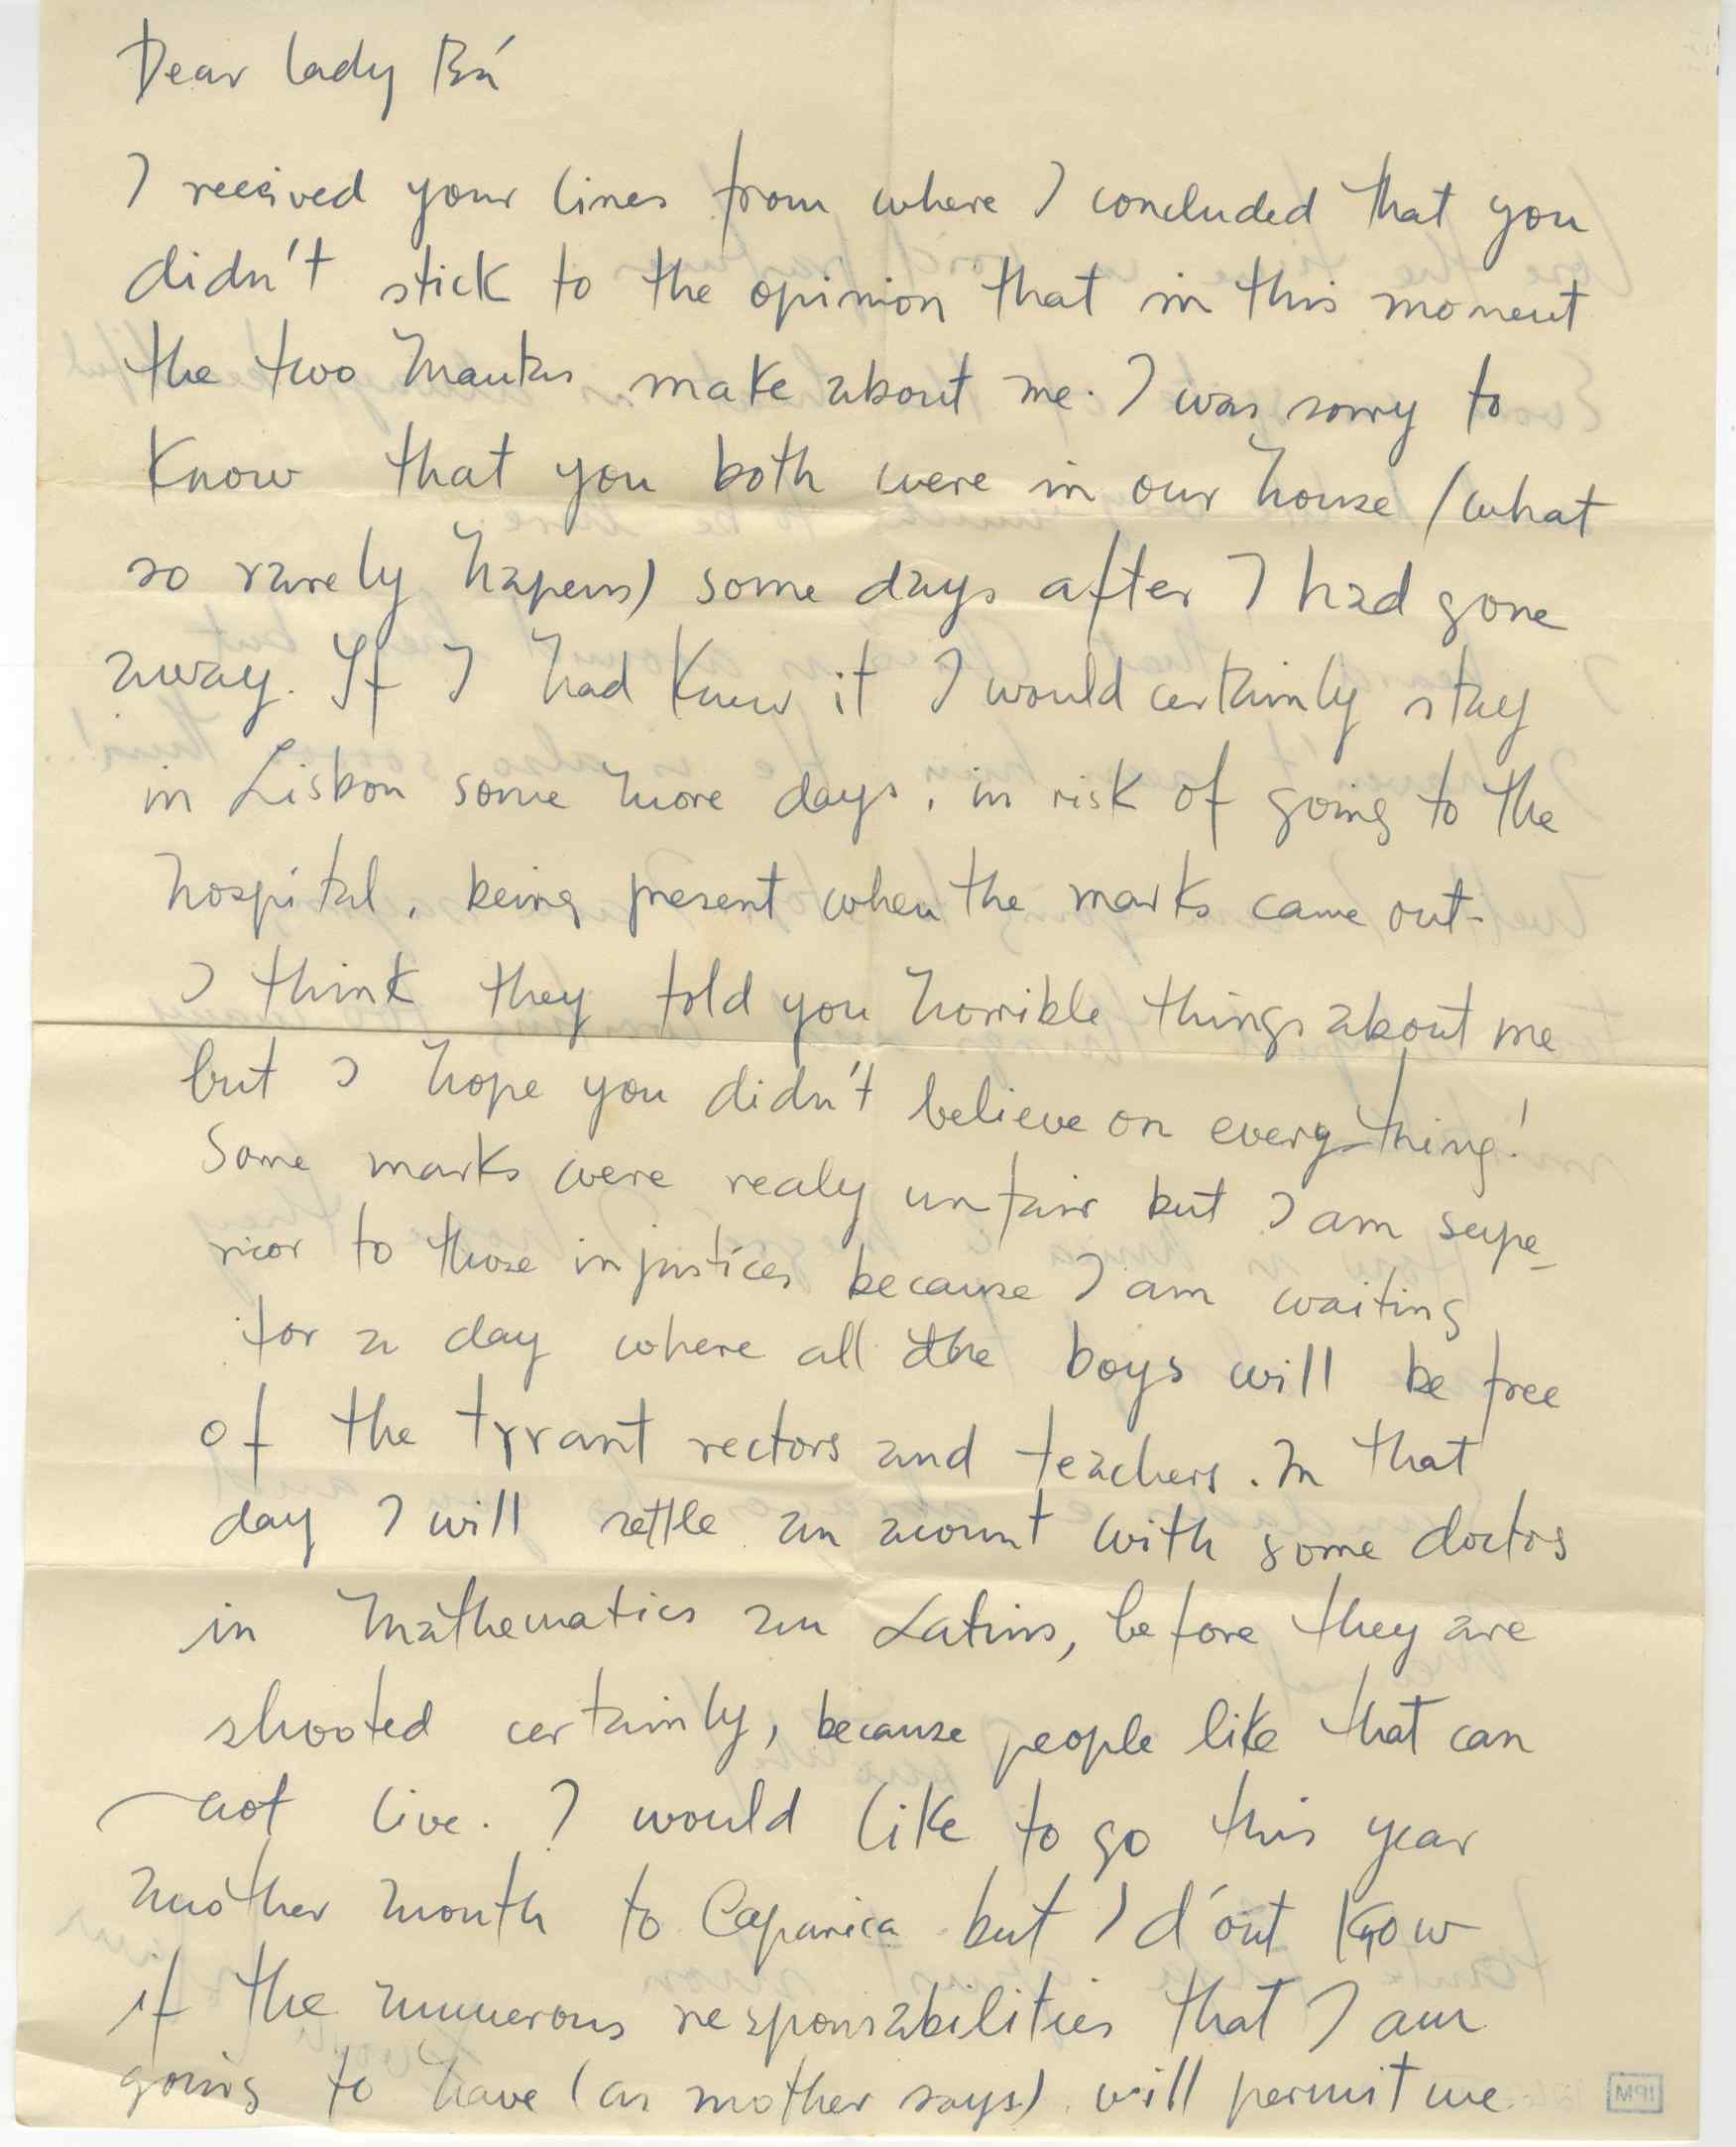 Dear Lady Bá
I received your lines from where I concluded that you
didn't stick to the opinion that in this moment
the two Mantas make about me. I was sorry to
Know that you both were in our house (what
so rarely hapens) some days after I had gone
away. If I had Knew it I would certainly stay
in Lisbon some more days, in risk of going to the
hospital, being present when the marks came out.
I think they told you horrible things about me
but I hope you didn't believe on everything!
Some marks were realy unfair but I am supe-
rior to those injustices because I am waiting
for a day where all the boys will be free
of the tyrant rectors and teachers. In that
day I will settle an acount with some doctors
in Mathematics an Latins, before they are
shooted certainly, because people like that can
not live. I would like to go this year
another month to Caparica but I d'ont Know
if the numerous responsabilities that I am
going to have (as mother says) will permit me